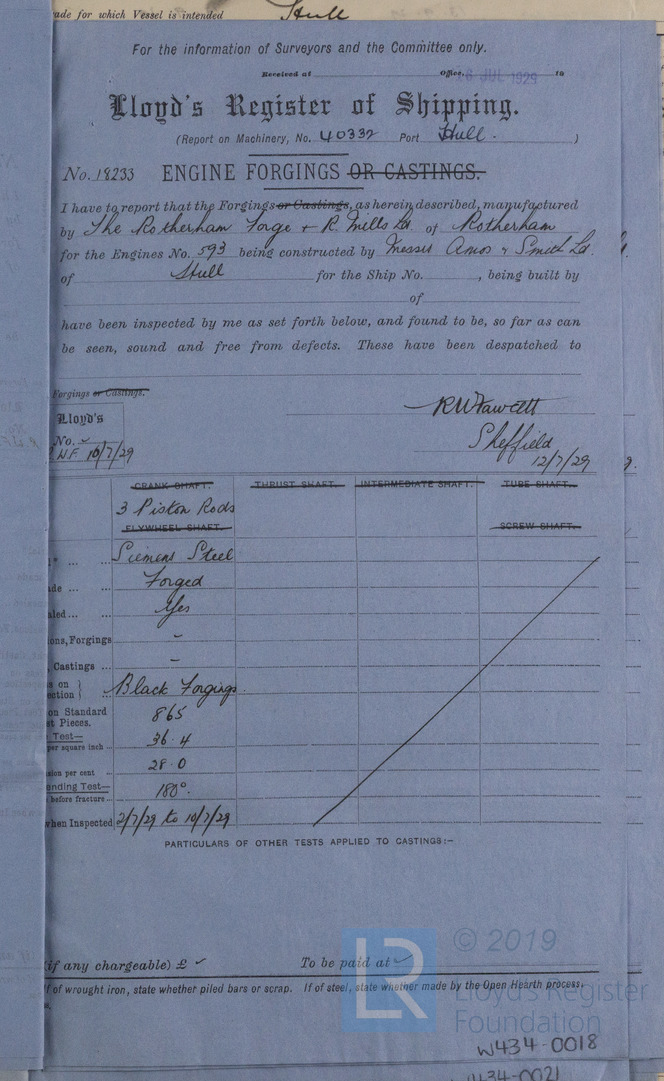 ade for which Vessel is intended Hull
For the information of Surveyors and the Committee only.
Received at Office, 6 JUL 1929 19
Lloyd's Register of Shipping.
(Report on Machinery, No. 40332 Port Hull. )
No. 18233 ENGINE FORGINGS OR CASTINGS.
I have to report that the Forgings or Castings, as herein described, manufactured
by The Rotherham Forge & R. Mills Ld of Rotherham
for the Engines No. 593 being constructed by Messrs Amos & Smith Ld.
of Hull for the Ship No. , being built by
of
have been inspected by me as set forth below, and found to be, so far as can
be seen, sound and free from defects. These have been despatched to
Forgings or Castings.
Lloyd's
No.
10/7/29
RWFawcett
Sheffield
12/7/29
CRANK SHAFT. THRUST SHAFT. INTERMEDIATE SHAFT. TUBE SHAFT.
3 Piston Rods
FLYWHEEL SHAFT. SCREW SHAFT.
Siemens Steel
ade Forged
aled Yes
ons, Forgings -
, Castings ... -
s on
ection Black Forgings.
on Standard
st Pieces. 865
Test—
per square inch 36.4
sion per cent 28.0
ending Test—
before fracture 180°.
when Inspected 2/7/29 to 10/7/29
PARTICULARS OF OTHER TESTS APPLIED TO CASTINGS:—
(if any chargeable) £ To be paid at
If of wrought iron, state whether piled bars or scrap. If of steel, state whether made by the Open Hearth process.
LR © 2019
Lloyd's Register
Foundation
W434-0018
W434-0021